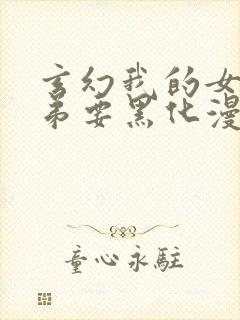 玄幻我的女
弟要黑化漫
童心永駐